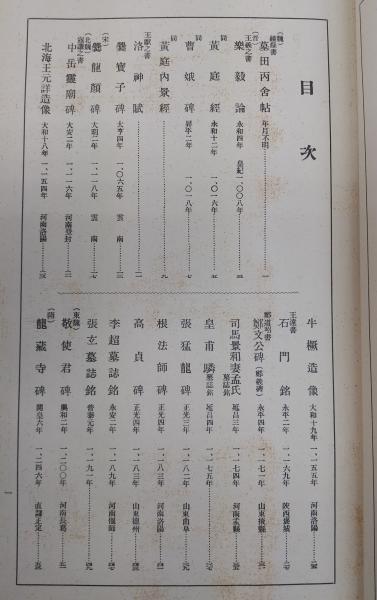 目次
(魏)鍾繇書 墓田丙舍帖 年月不明
(晉)王羲之書 樂毅論 永和四年 皇紀一、〇〇八年
同 黃庭經 永和十二年 一、〇一六年
同 曹娥碑 昇平二年 一、〇一八年
同 黃庭內景經
王獻之書 洛神賦
爨寶子碑 大亨四年 一、〇六五年 雲南
(宋) 爨龍顏碑 大明二年 一、一一八年 雲南
(北魏)寇謙之書 中岳靈廟碑 大安二年 一、一一六年 河南登封
北海王元詳造像 太和十八年 一、一五四年 河南洛陽
牛橛造像 太和十九年 一、一五五年 河南洛陽
王遠書 石門銘 永平二年 一、一六九年 陝西褒城
鄭道昭書 鄭文公碑(鄭羲碑) 永平四年 一、一七一年 山東掖縣
司馬景和妻孟氏墓誌銘 延昌三年 一、一七四年 河南孟縣
皇甫驎墓誌銘 延昌四年 一、一七五年
張猛龍碑 正光三年 一、一八二年 山東曲阜
根法師碑 正光四年 一、一八三年 河南洛陽
高貞碑 正光四年 一、一八三年 山東德州
李超墓誌銘 永安二年 一、一八九年 河南偃師
張玄墓誌銘 普泰元年 一、一九一年
(東魏) 敬使君碑 興和二年 一、二〇〇年 河南長葛
(隋) 龍藏寺碑 開皇六年 一、二四六年 直隸正定